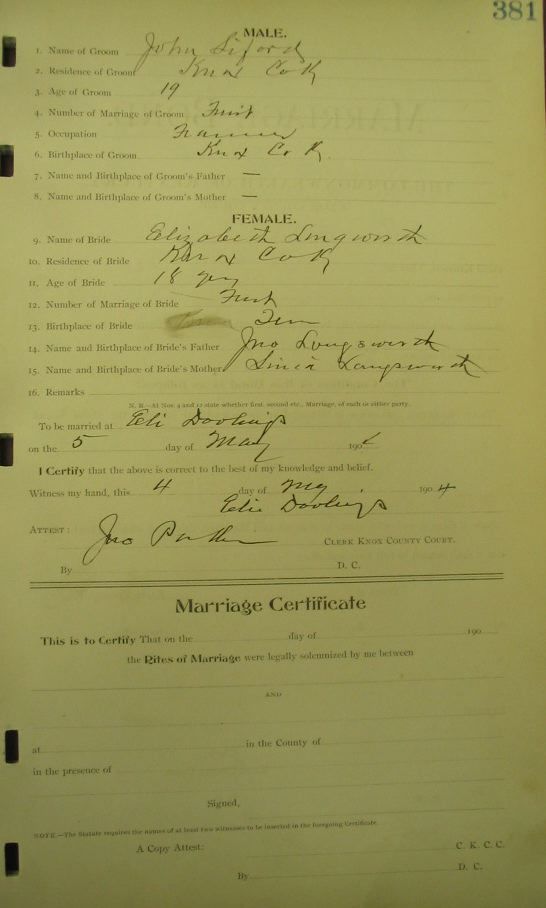 381
MALE.
1. Name of Groom John Siford
2. Residence of Groom Knox Co K
3. Age of Groom 19
4. Number of Marriage of Groom First
5. Occupation Farmer
6. Birthplace of Groom Knox Co K.
7. Name and Birthplace of Groom's Father —
8. Name and Birthplace of Groom's Mother —
FEMALE.
9. Name of Bride Elizabeth Longworth
10. Residence of Bride Knox Co K
11. Age of Bride 18 yrs
12. Number of Marriage of Bride First
13. Birthplace of Bride Tenn
14. Name and Birthplace of Bride's Father Jno Longsworth
15. Name and Birthplace of Bride's Mother Longsworth
16. Remarks
N. B.—At Nos. 4 and 12 state whether first, second etc., Marriage, of each or either party.
To be married at Eli Doolings
on the 5 day of May 1904
I Certify that the above is correct to the best of my knowledge and belief.
Witness my hand, this 4 day of My 1904
Elie Doolings
ATTEST: Jno Parker CLERK KNOX COUNTY COURT.
By D. C.
Marriage Certificate
This is to Certify That on the day of 190
the Rites of Marriage were legally solemnized by me between
AND
at in the County of
in the presence of
Signed,
NOTE.—The Statute requires the names of at least two witnesses to be inserted in the foregoing Certificate.
A Copy Attest: C. K. C. C.
By D. C.